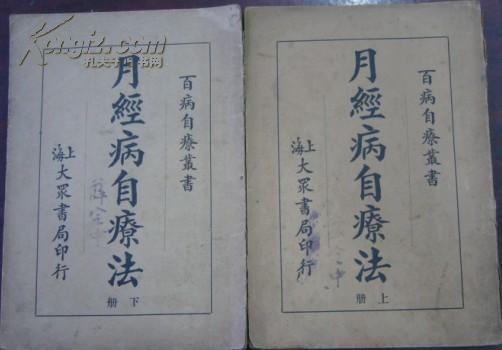 百病自療叢書
月經病自療法
上册
上海大眾書局印行
百病自療叢書
月經病自療法
下册
上海大眾書局印行
kongfz.com
孔夫子旧书网